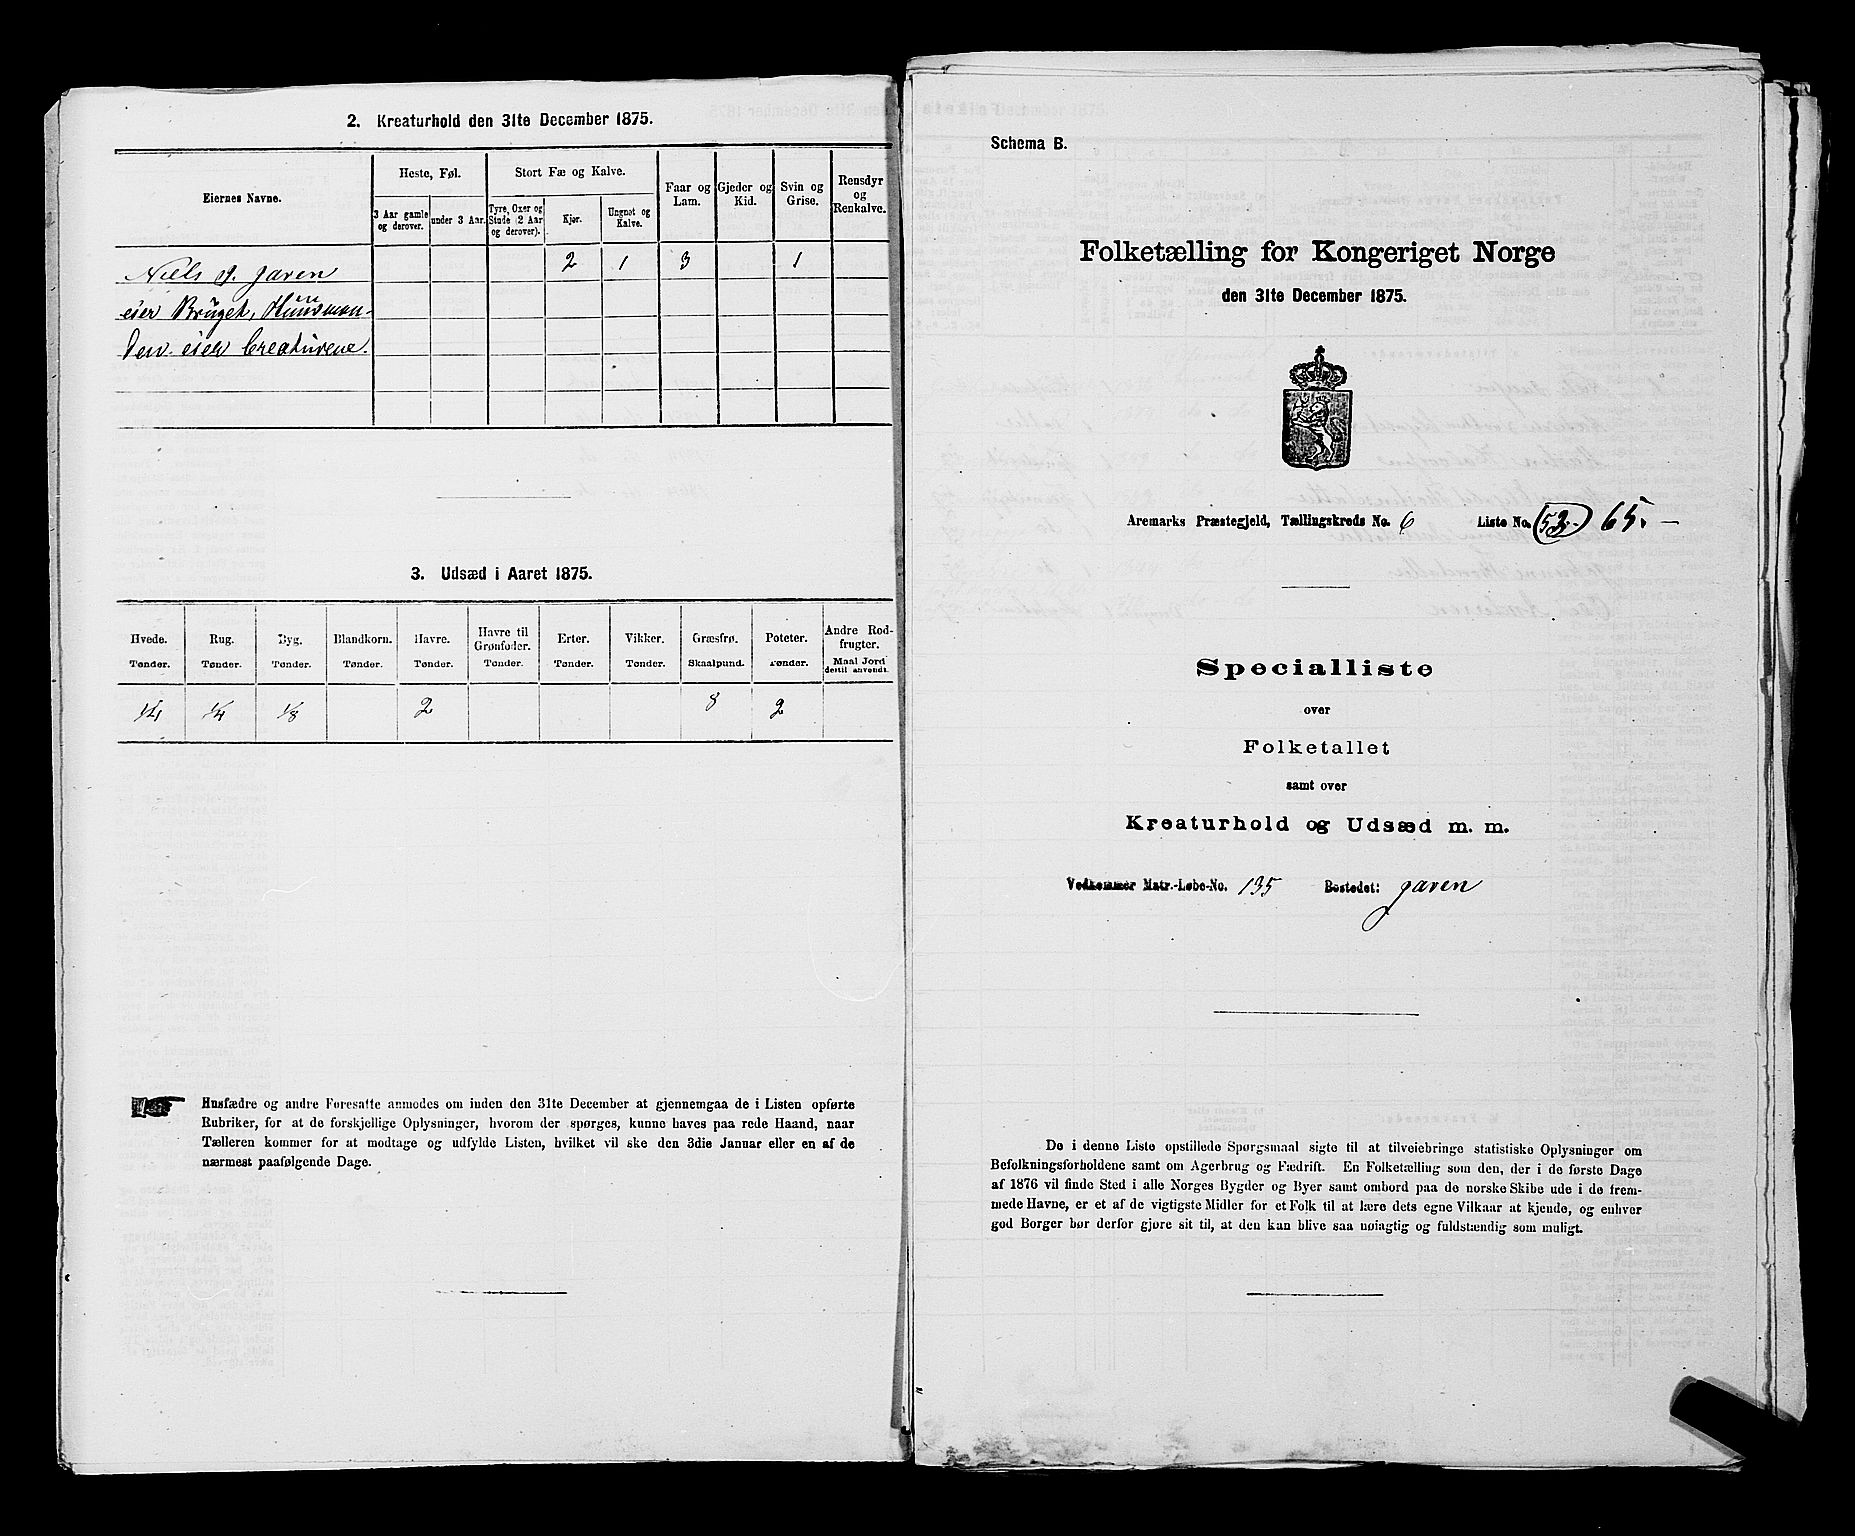 2. Kreaturhold den 31te December 1875.
Eiernes Navne.
Heste, Føl.
3 Aar gamle og derover.
under 3 Aar.
Stort Fæ og Kalve.
Tyre, Oxer og Stude (2 Aar og derover).
Kjør.
Ungnøt og Kalve.
Faar og Lam.
Gjeder og Kid.
Svin og Grise.
Rensdyr og Renkalve.
Niels J. Jaren 2 1 3 1
eier Bruget, Huusman-
den eier Creaturene.
3. Udsæd i Aaret 1875.
Hvede. Rug. Byg. Blandkorn. Havre. Havre til Grønfoder. Erter. Vikker. Græsfrø. Poteter. Andre Rodfrugter.
Tønder. Tønder. Tønder. Tønder. Tønder. Tønder. Tønder. Tønder. Skaalpund. Tønder. Maal Jord dertil anvendt.
1/4 1/4 1/8 2 8 2
Husfædre og andre Foresatte anmodes om inden den 31te December at gjennemgaa de i Listen opførte
Rubriker, for at de forskjellige Oplysninger, hvorom der spørges, kunne haves paa rede Haand, naar
Tælleren kommer for at modtage og udfylde Listen, hvilket vil ske den 3die Januar eller en af de
nærmest paafølgende Dage.
Schema B.
Folketælling for Kongeriget Norge
den 31te December 1875.
Aremarks Præstegjeld, Tællingskreds No. 6 Liste No. 52. 65.
Specialliste
over
Folketallet
samt over
Kreaturhold og Udsæd m. m.
Vedkommer Matr.-Løbe-No. 135 Bostedet: Jaren
De i denne Liste opstillede Spørgsmaal sigte til at tilveiebringe statistiske Oplysninger om
Befolkningsforholdene samt om Agerbrug og Fædrift. En Folketælling som den, der i de første Dage
af 1876 vil finde Sted i alle Norges Bygder og Byer samt ombord paa de norske Skibe ude i de frem-
mede Havne, er et af de vigtigste Midler for et Folk til at lære dets egne Vilkaar at kjende, og enhver
god Borger bør derfor gjøre sit til, at den kan blive saa nøiagtig og fuldstændig som muligt.